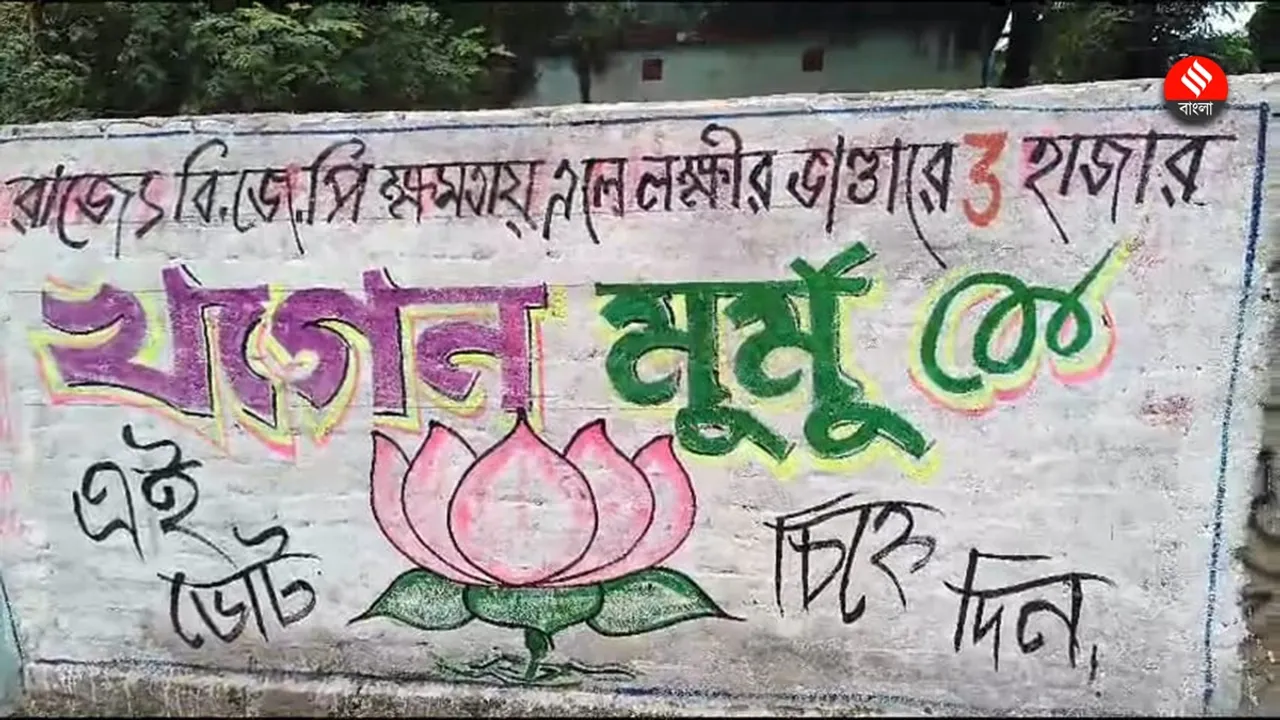 রাজ্যে বি.জে.পি ক্ষমতায় এলে লক্ষীর ভাণ্ডারে 3 হাজার
খগেন মুর্মু কে
এই চিহ্নে
ভোট দিন,
বাংলা